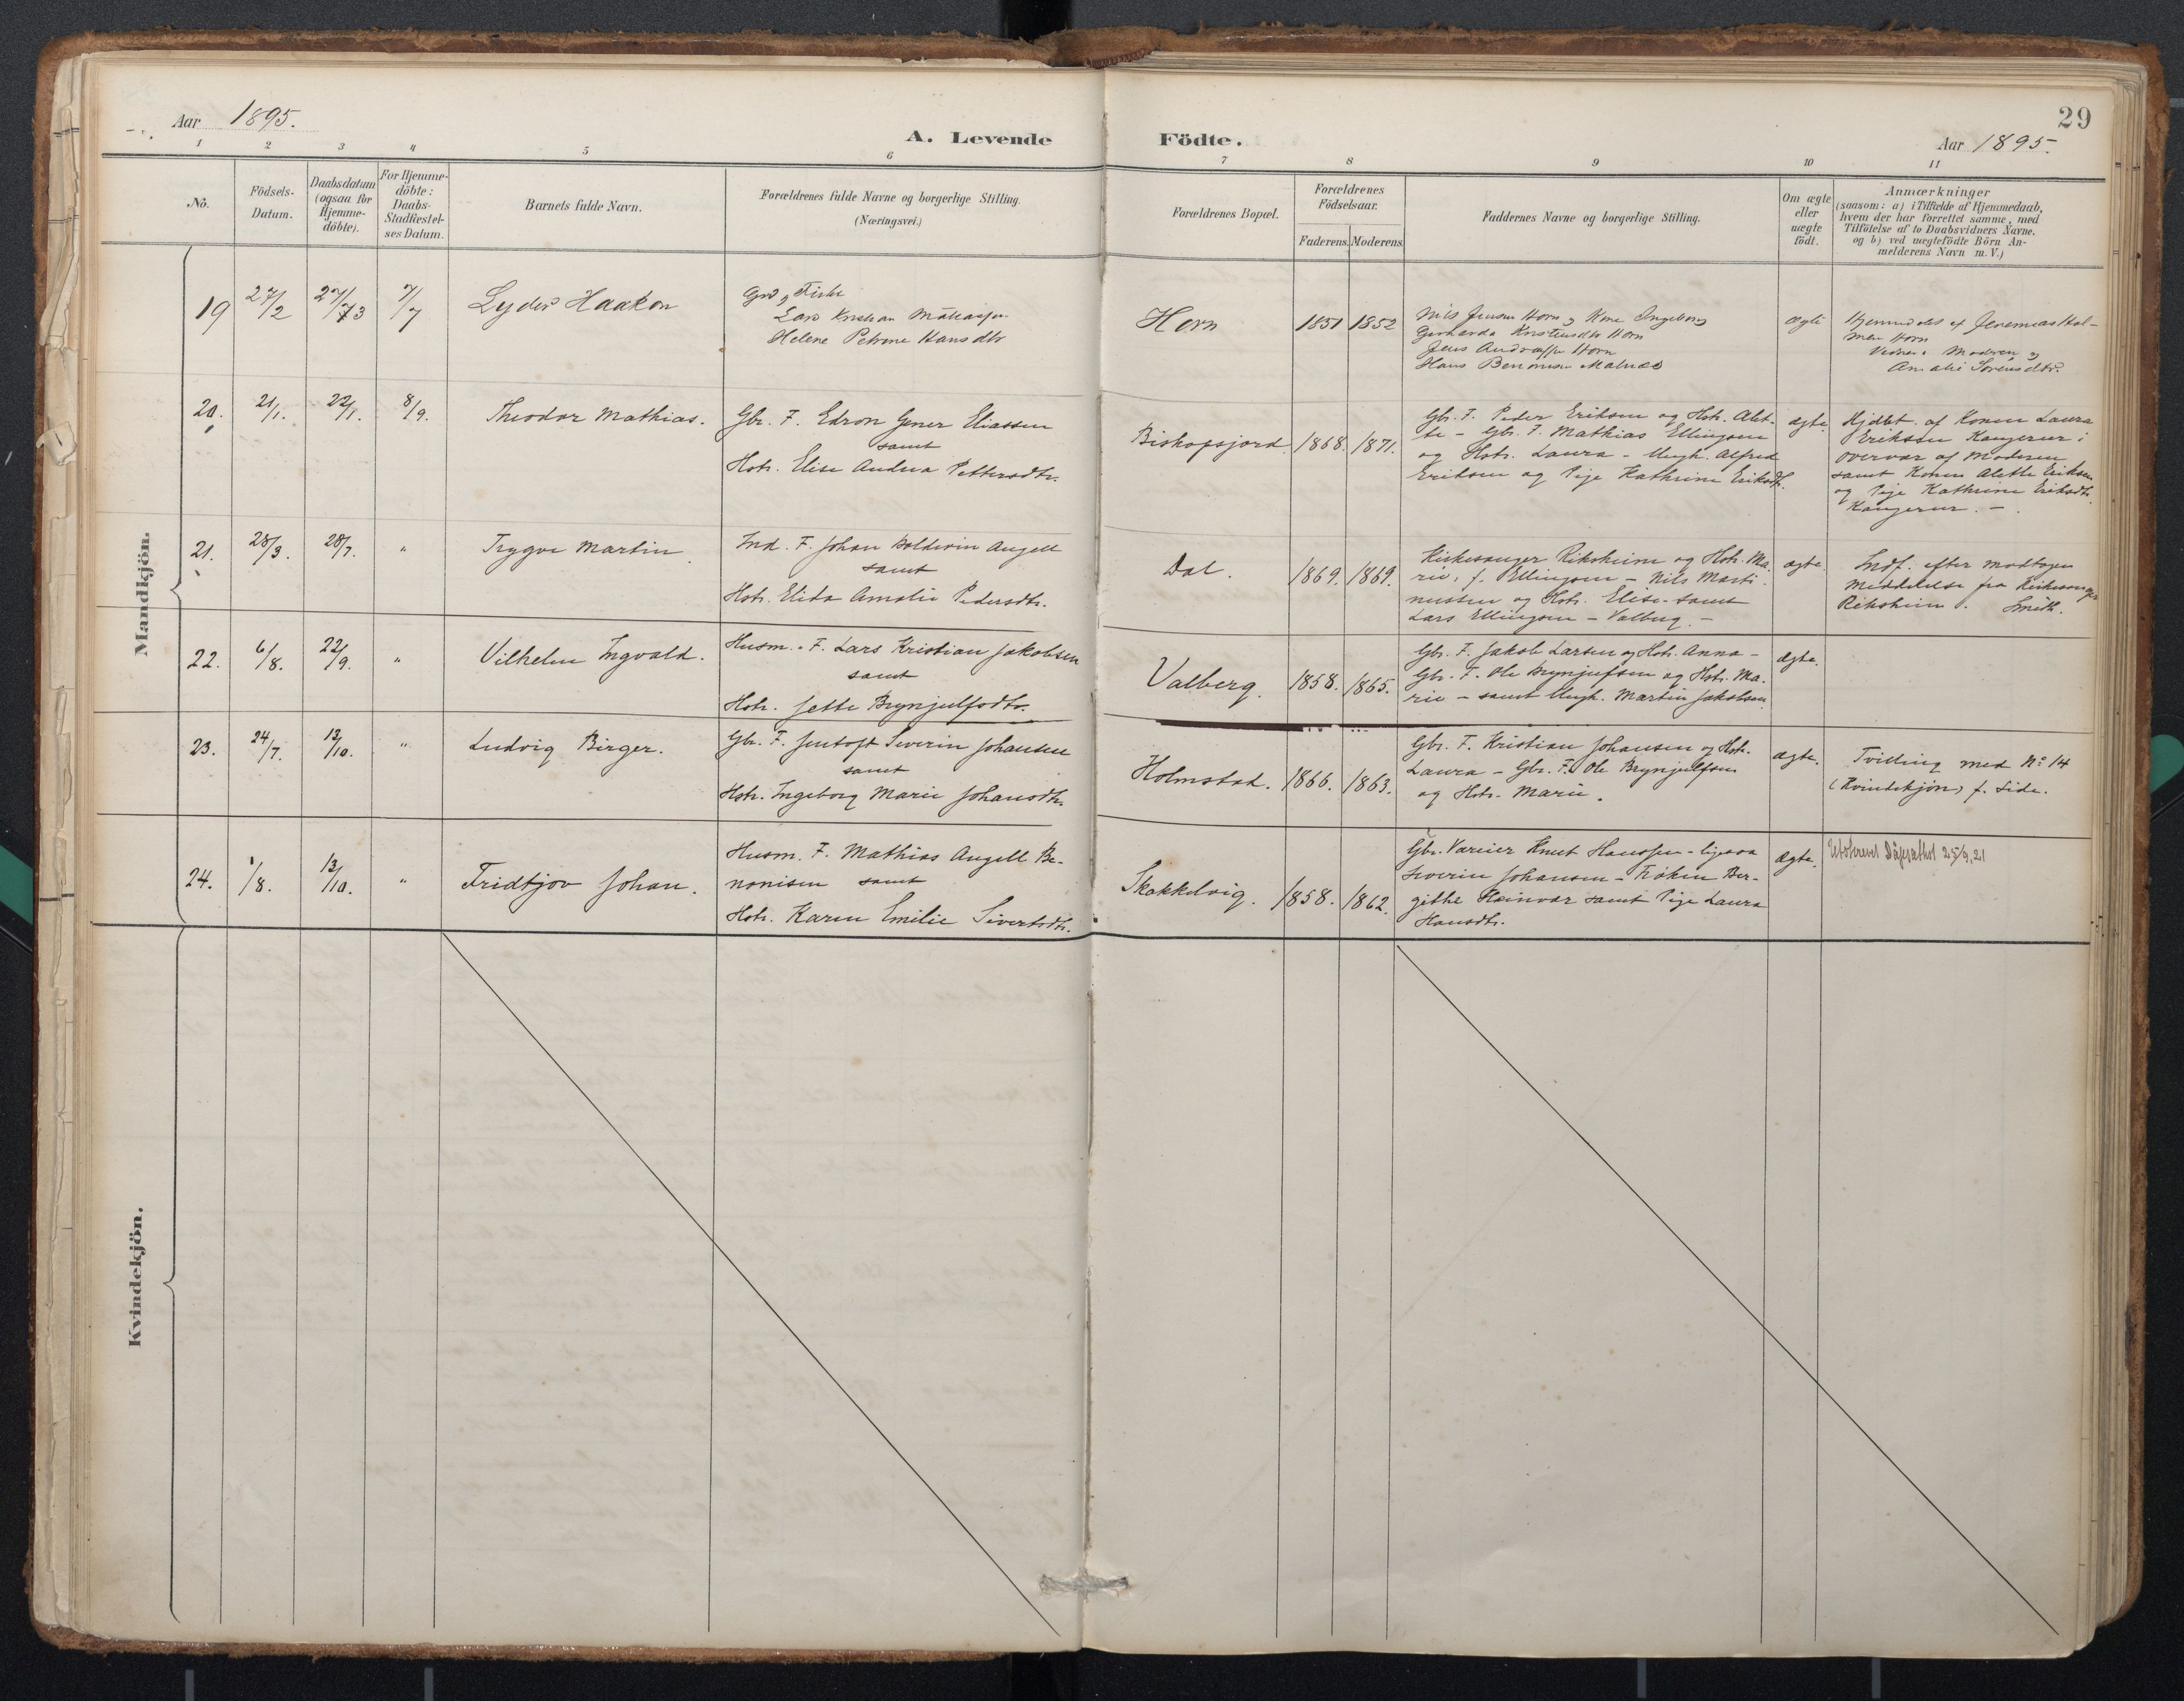 Aar 1895.
A. Levende Födte.
29
Aar 1895.
1 2 3 4 5 6 7 8 9 10 11
No.
Födsels-Datum.
Daabsdatum (ogsaa for Hjemme-döbte).
For Hjemme-döbte: Daabs-Stadfæstel-ses Datum.
Barnets fulde Navn.
Forældrenes fulde Navne og borgerlige Stilling. (Næringsvei.)
Forældrenes Bopæl.
Forældrenes Födselsaar.
Faderens. Moderens.
Faddernes Navne og borgerlige Stilling.
Om ægte eller uægte födt.
Anmærkninger
(saasom: a) i Tilfælde af Hjemmedaab,
hvem der har forrettet samme, med
Tilföielse af to Daabsvidners Navne.
og b) ved uægtefödte Börn An-
melderens Navn m.V.)
Mandkjön.
19 27/2 27/3 7/7 Lyder Haakon
Lars Kristian
Helene Petrine Hansdtr
Horn 1851 1852
Nils Jensen Horn og Kone Ingeborg
Gerharda Kristensdtr Horn
Jens Andreassen Horn
Hans Benonisen Malnæs
ægte
Hjemmedøbt af Jeremias Hol-
men Horn
Vidner: Moderen og
Amalie Sørensdtr.
20. 21/1. 22/1. 8/9. Theodor Mathias.
Gbr. F. Edron Gener Eliassen
samt
Hstr. Elise Andrea Pettersdtr.
Bispopsjord 1868. 1871.
Gbr. F. Peder Eriksen og Hstr. Alet-
te - Gbr. F. Mathias Ellingsen
og Hstr. Laura - Ungk. Alfred
Eriksen og Pige Kathrine Eriksdtr.
ægte.
Hjdbt. af Konen Laura
Eriksen Kangerur i
overvær af Moderen
samt Konen Alette Eriksen
og Pige Kathrine Eriksdtr.
Kangerur. -
21. 28/3. 28/7. " Trygve Martin.
Ind. F. Johan Boldevin Angell
samt
Hstr. Elida Amalie Pedersdtr.
Dal. 1869. 1869.
Kirkesanger Riksheim og Hstr. Ma-
rie, f. Ellingsen - Nils Marti-
nussen og Hstr. Elise - samt
Lars Ellingsen - Valberg. -
ægte.
Indf. efter modtagen
Meddelelse fra Kirkesanger
Riksheim. Smith.
22. 6/8. 22/9. " Vilhelm Ingvald.
Husm. F. Lars Kristian Jakobsen
samt
Hstr. Jette Brynjulfsdtr.
Valberg. 1858. 1865.
Gbr. F. Jakob Larsen og Hstr. Anna -
Gbr. F. Ole Brynjulfsen og Hstr. Ma-
rie - samt Ungk. Martin Jakobsen
ægte.
23. 24/7. 13/10. " Ludvig Birger.
Gbr. F. Jentoft Severin Johansen
samt
Hstr. Ingeborg Marie Johansdtr.
Holmstad. 1866. 1863.
Gbr. F. Kristian Johansen og Hstr.
Laura - Gbr. F. Ole Brynjulfsen
og Hstr. Marie.
ægte.
Tvilling med No 14
(Kvindekjön) f. Side.
24. 1/8. 13/10. " Fridtjov Johan.
Husm. F. Mathias Angell Be-
nonisen samt
Hstr. Karen Emilie Sivertsdtr.
Skakkelvig. 1858. 1862.
Gbr. Knut Hanssen - ligesaa
Severin Johansen - Frøken Ber-
githe Heinvær samt Pige Laura
Hansdtr.
ægte.
Utskrevet 25/9.21
Kvindekjön.